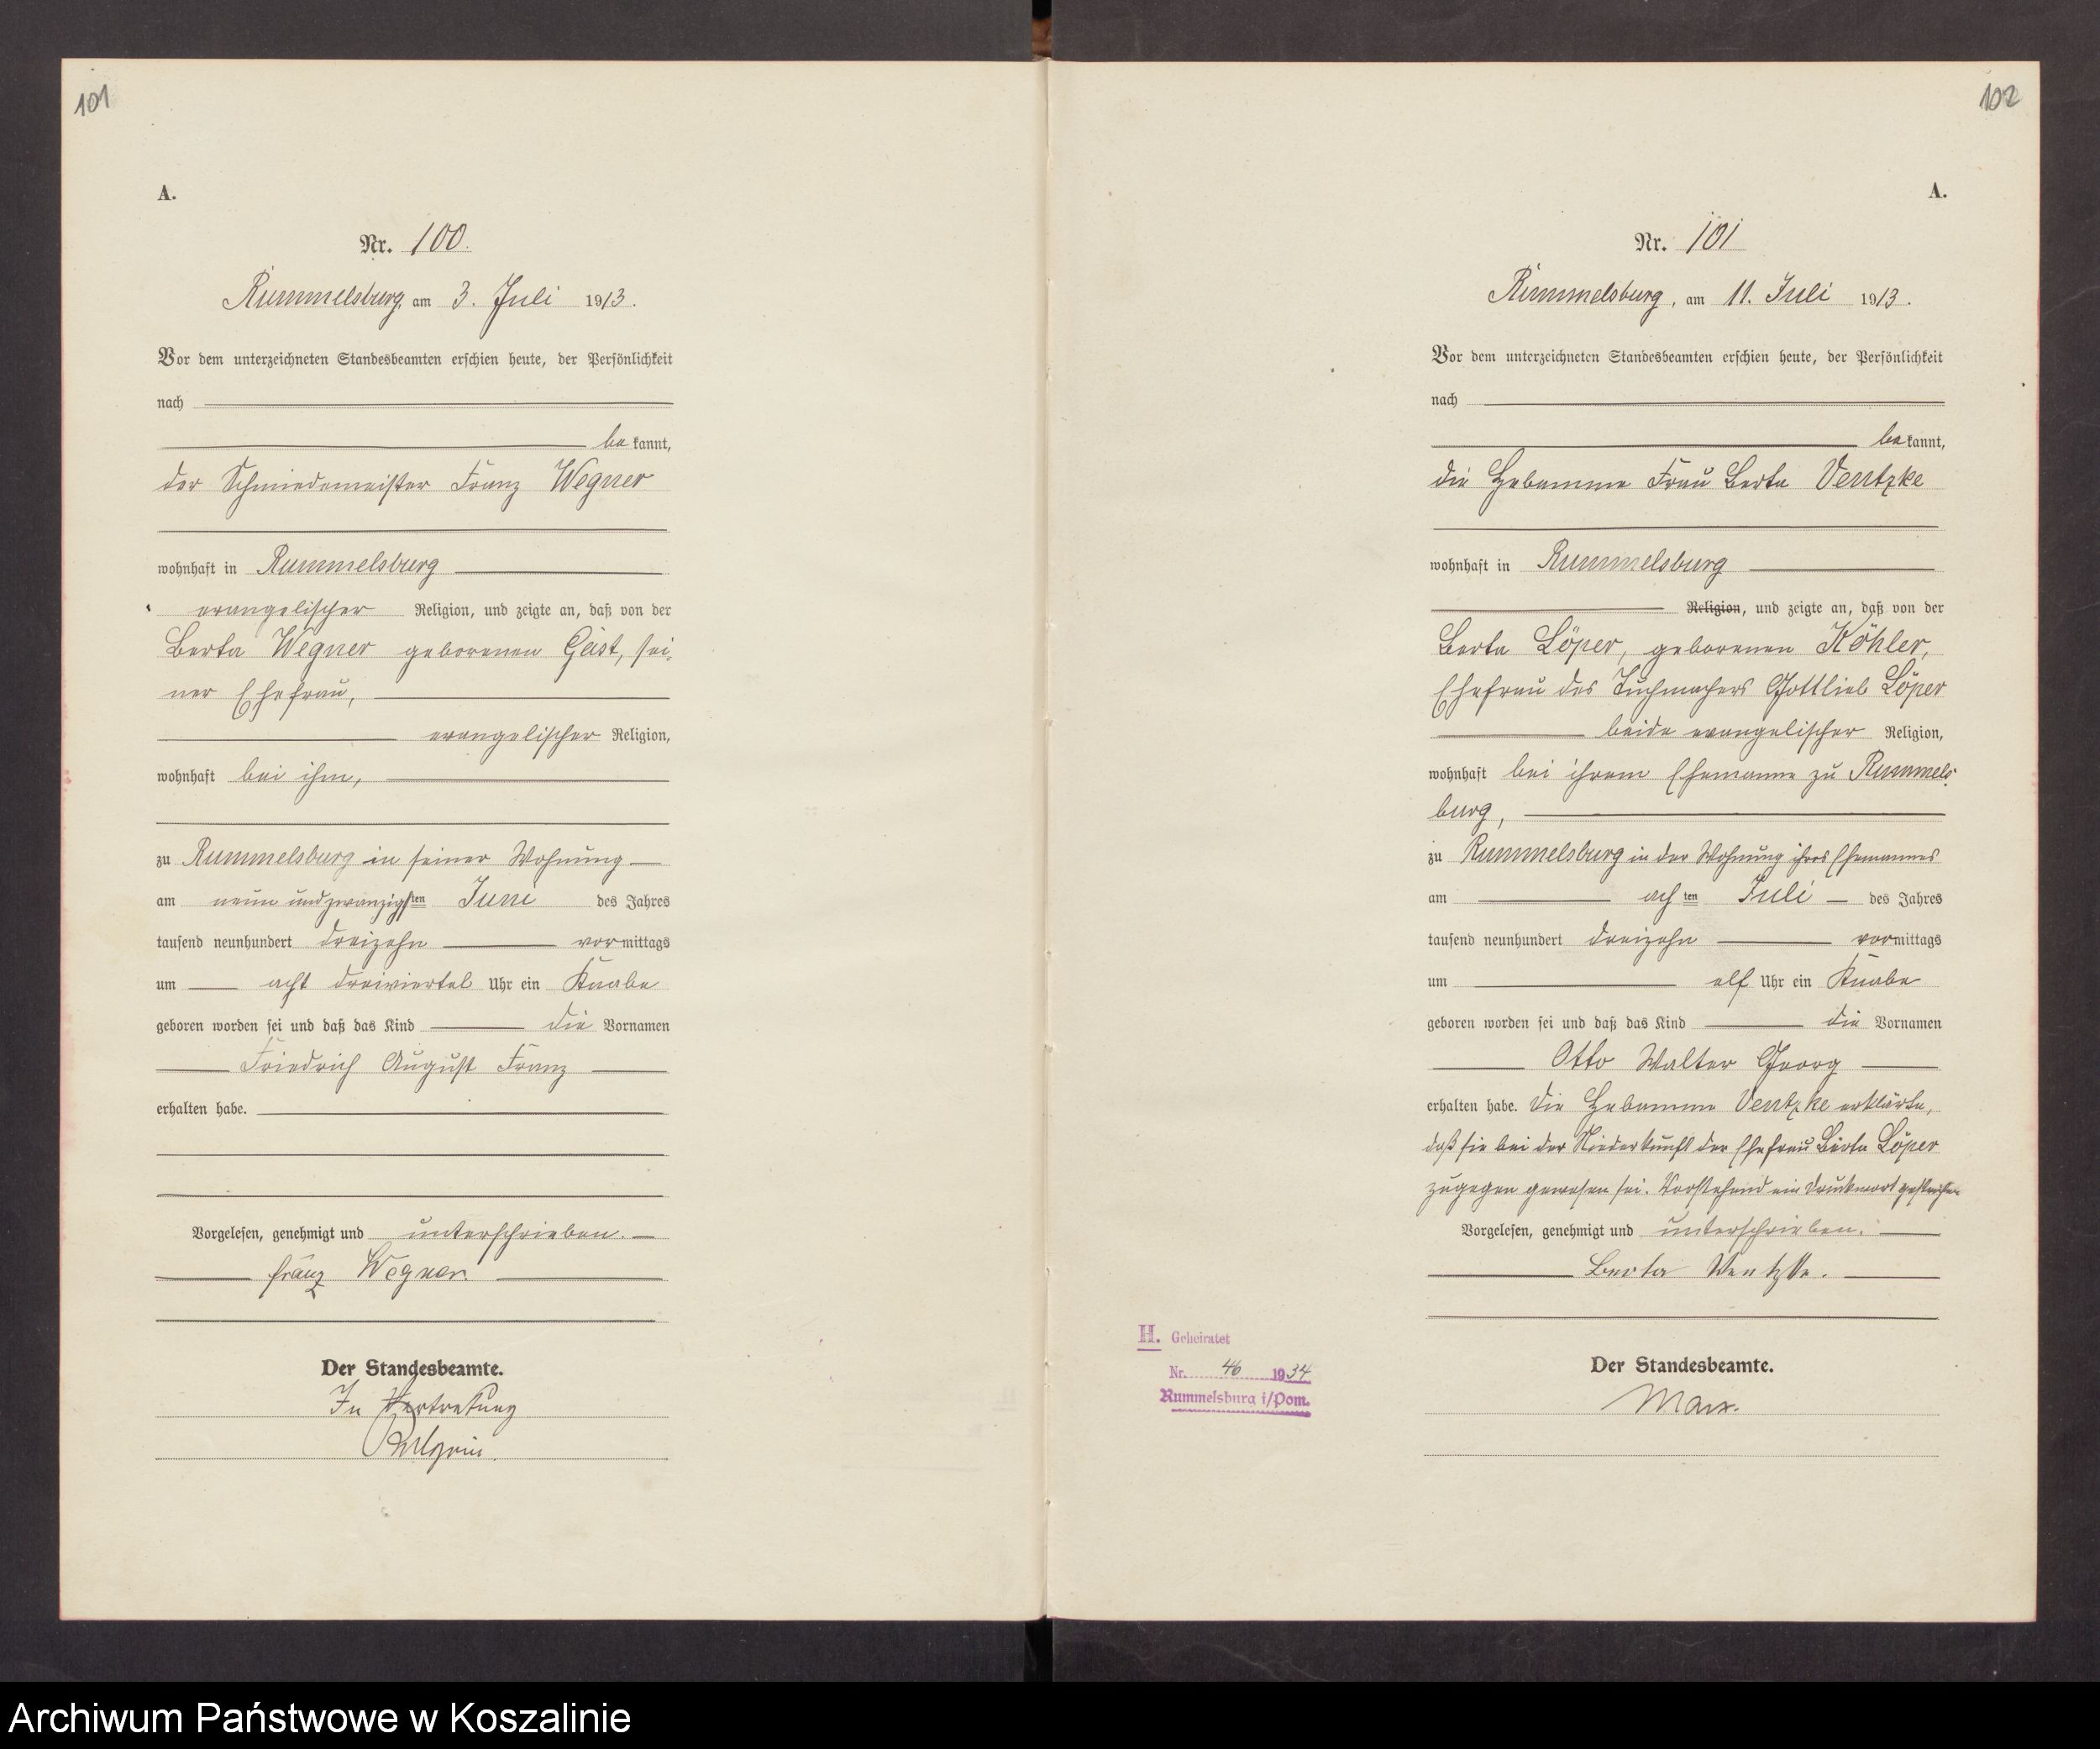 101
A.
Nr. 100.
Rummelsburg, am 3. Juli 1913.
Vor dem unterzeichneten Standesbeamten erschien heute, der Persönlichkeit
nach
bekannt,
der Schmiedemeister Franz Wegner
wohnhaft in Rummelsburg
evangelischer Religion, und zeigte an, daß von der
Berta Wegner geborenen Geist, sei-
ner Ehefrau,
evangelischer Religion,
wohnhaft bei ihm,
zu Rummelsburg in seiner Wohnung
am neun undzwanzigsten Juni des Jahres
tausend neunhundert dreizehn vormittags
um acht dreiviertel Uhr ein Knabe
geboren worden sei und daß das Kind die Vornamen
Friedrich August Franz
erhalten habe.
Vorgelesen, genehmigt und unterschrieben.
Franz Wegner.
Der Standesbeamte.
In Vertretung
102
A.
Nr. 101
Rummelsburg, am 11. Juli 1913.
Vor dem unterzeichneten Standesbeamten erschien heute, der Persönlichkeit
nach
bekannt,
die Hebamme Frau Berta Ventzke
wohnhaft in Rummelsburg
Religion, und zeigte an, daß von der
Berta Löper, geborenen Köhler,
Ehefrau des Tuchmachers Gottlieb Löper
beide evangelischer Religion,
wohnhaft bei ihrem Ehemanne zu Rummels-
burg,
zu Rummelsburg in der Wohnung ihres Ehemannes
am achten Juli des Jahres
tausend neunhundert dreizehn vormittags
um elf Uhr ein Knabe
geboren worden sei und daß das Kind die Vornamen
Otto Walter Georg
erhalten habe. Die Hebamme Ventzke erklärte,
daß sie bei der Niederkunft der Ehefrau Berta Löper
zugegen gewesen sei. Vorstehend ein Druckwort gestrichen
Vorgelesen, genehmigt und unterschrieben.
Berta Wentzke.
H. Geheiratet
Nr. 46 1934
Rummelsburg i/Pom.
Der Standesbeamte.
Marx.
Archiwum Państwowe w Koszalinie